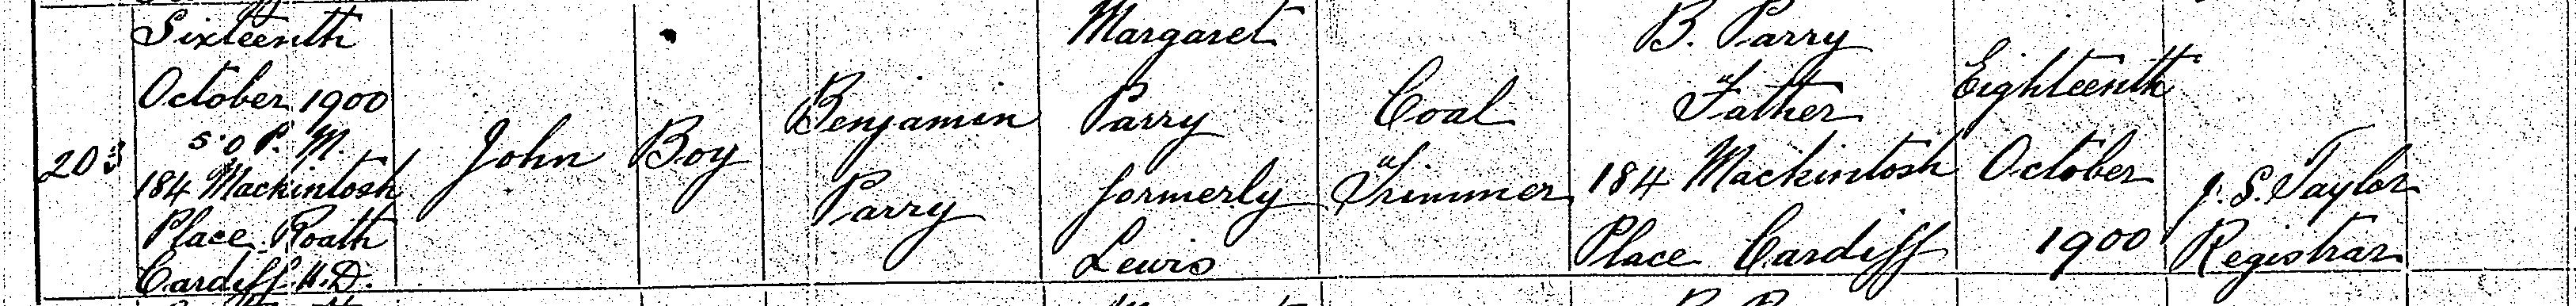 203
Sixteenth
October 1900
5.0 P.M.
184 Mackintosh
Place Roath
Cardiff U.D.
John
Boy
Benjamin
Parry
Margaret
Parry
formerly
Lewis
Coal
Trimmer
B. Parry
Father
184 Mackintosh
Place Cardiff
Eighteenth
October
1900
J. S. Taylor
Registrar